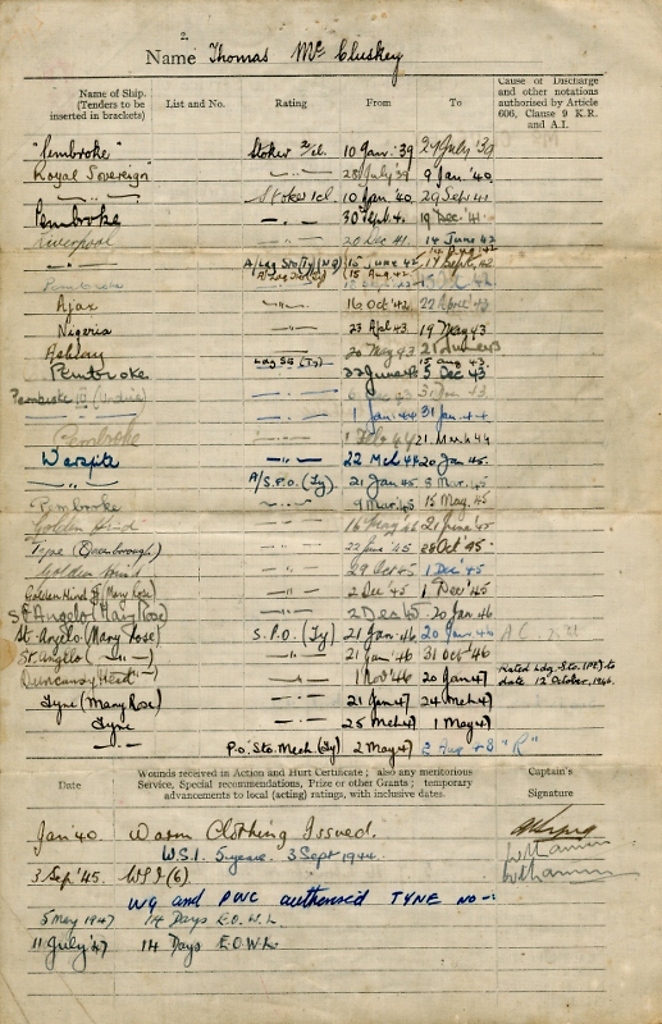 2.
Name Thomas Mc Cluskey
Name of Ship. (Tenders to be inserted in brackets) List and No. Rating From To Cause of Discharge and other notations authorised by Article 606, Clause 9 K.R. and A.I.
"Pembroke" Stoker 2/cl. 10 Jan. '39 27 July '39
Royal Sovereign 28 July '39 9 Jan. '40
—"— Stoker 1cl. 10 Jan '40 29 Sept 41
Pembroke —"— 30 Sept. 4. 19 Dec '41
Liverpool 20 Dec 41. 14 June 42
—"— A/Ldg Sto (Ty) (NQ) 15 June 42 14 Aug 42
A/Ldg Sto (Ty) (15 Aug 42 17 Sept. 42
Pembroke
Ajax —"— 16 Oct '42 22 April '43
Nigeria —"— 23 Apl 43 19 May 43
20 May 43 21 June 43
Ldg Sto (Ty) 15 Aug 43.
Pembroke 22 June 43 5 Dec '43
Pembroke 6 Dec 43 31
—"— —"— 1 Jan 44 31 Jan 44
Pembroke —"— 1 Feb 44 21. March 44
Warspite —"— 22 Mch 44 20 Jan '45.
—"— A/S.P.O. (Ty) 21 Jan 45 8 Mar. 45
Pembroke —"— 9 Mar '45 15 May. 45
Golden Hind —"— 16 May 21 June '45
Tyne (Queenborough) —"— 22 June '45 28 Oct '45.
Golden Hind —"— 29 Oct 45 1 Dec '45
Golden Hind (Mary Rose) —"— 2 Dec '45 1 Dec '45
St Angelo (Mary Rose) —"— 2 Dec 45 20 Jan 46
St. Angelo (Mary Rose) S.P.O. (Ty) 21 Jan '46 20 Jan 46
St. Angelo (—"—) —"— 21 Jan '46 31 Oct '46
—"— 1 Nov '46 20 Jan 47 Rated Ldg. Sto. (PE) to date 12 October, 1946.
Tyne (Mary Rose) —"— 21 Jan 47 24 Mch 47
Tyne —"— 25 Mch 47 1 May 47
—"— P.o. Sto. Mech (Ty) 2 May 47 2 Aug 48 "R"
Date Wounds received in Action and Hurt Certificate; also any meritorious Service, Special recommendations, Prize or other Grants; temporary advancements to local (acting) ratings, with inclusive dates. Captain's Signature
Jan '40 Warm Clothing Issued.
W.S.I. 5 years. 3 Sept 1944.
3 Sep '45. W S I (6)
WG and PWC authorised TYNE NO -
5 May 1947 14 Days E.O.W.L.
11 July '47 14 Days E.O.W.L.